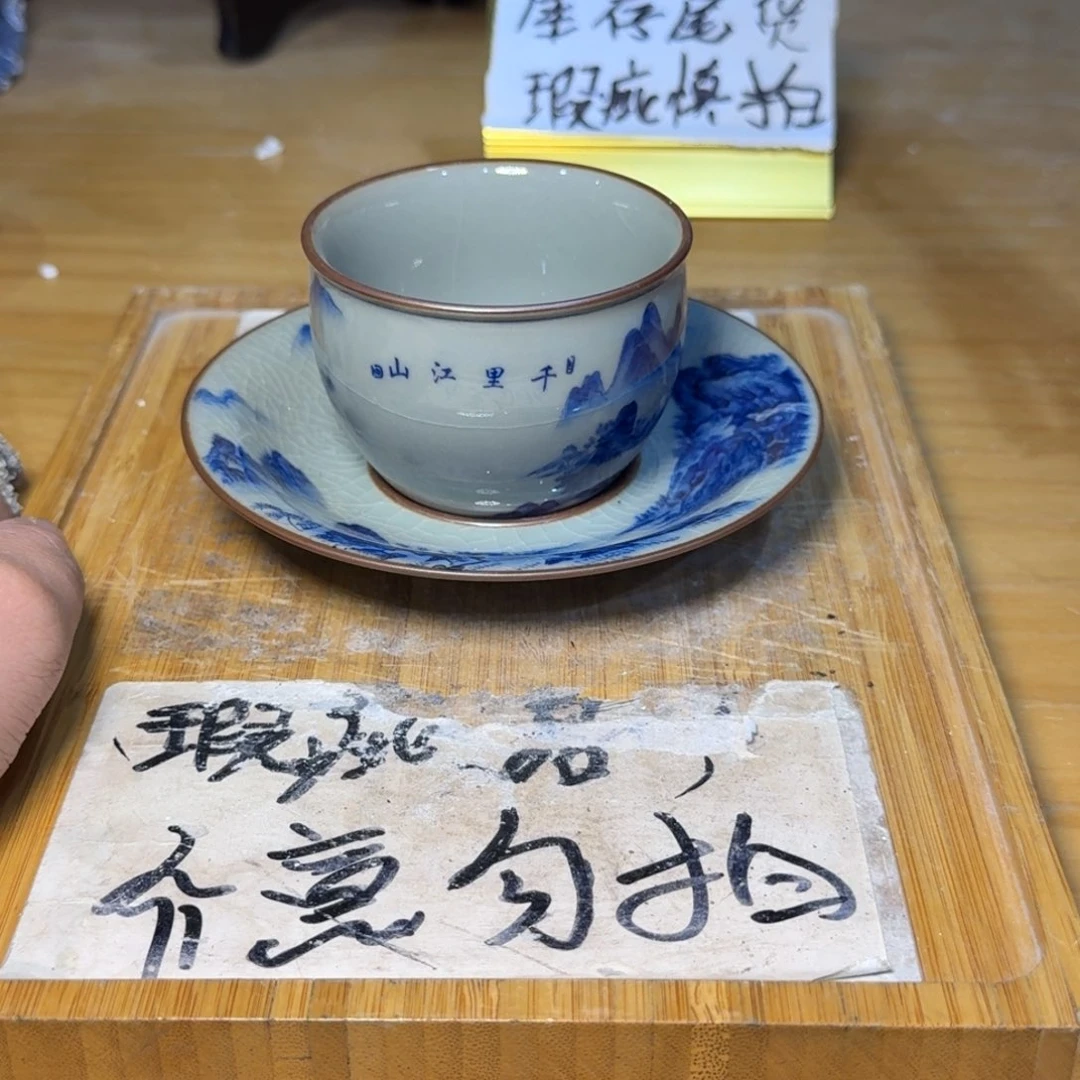 库存尾货
瑕疵慎拍
山江里千
瑕疵品,
介意勿拍